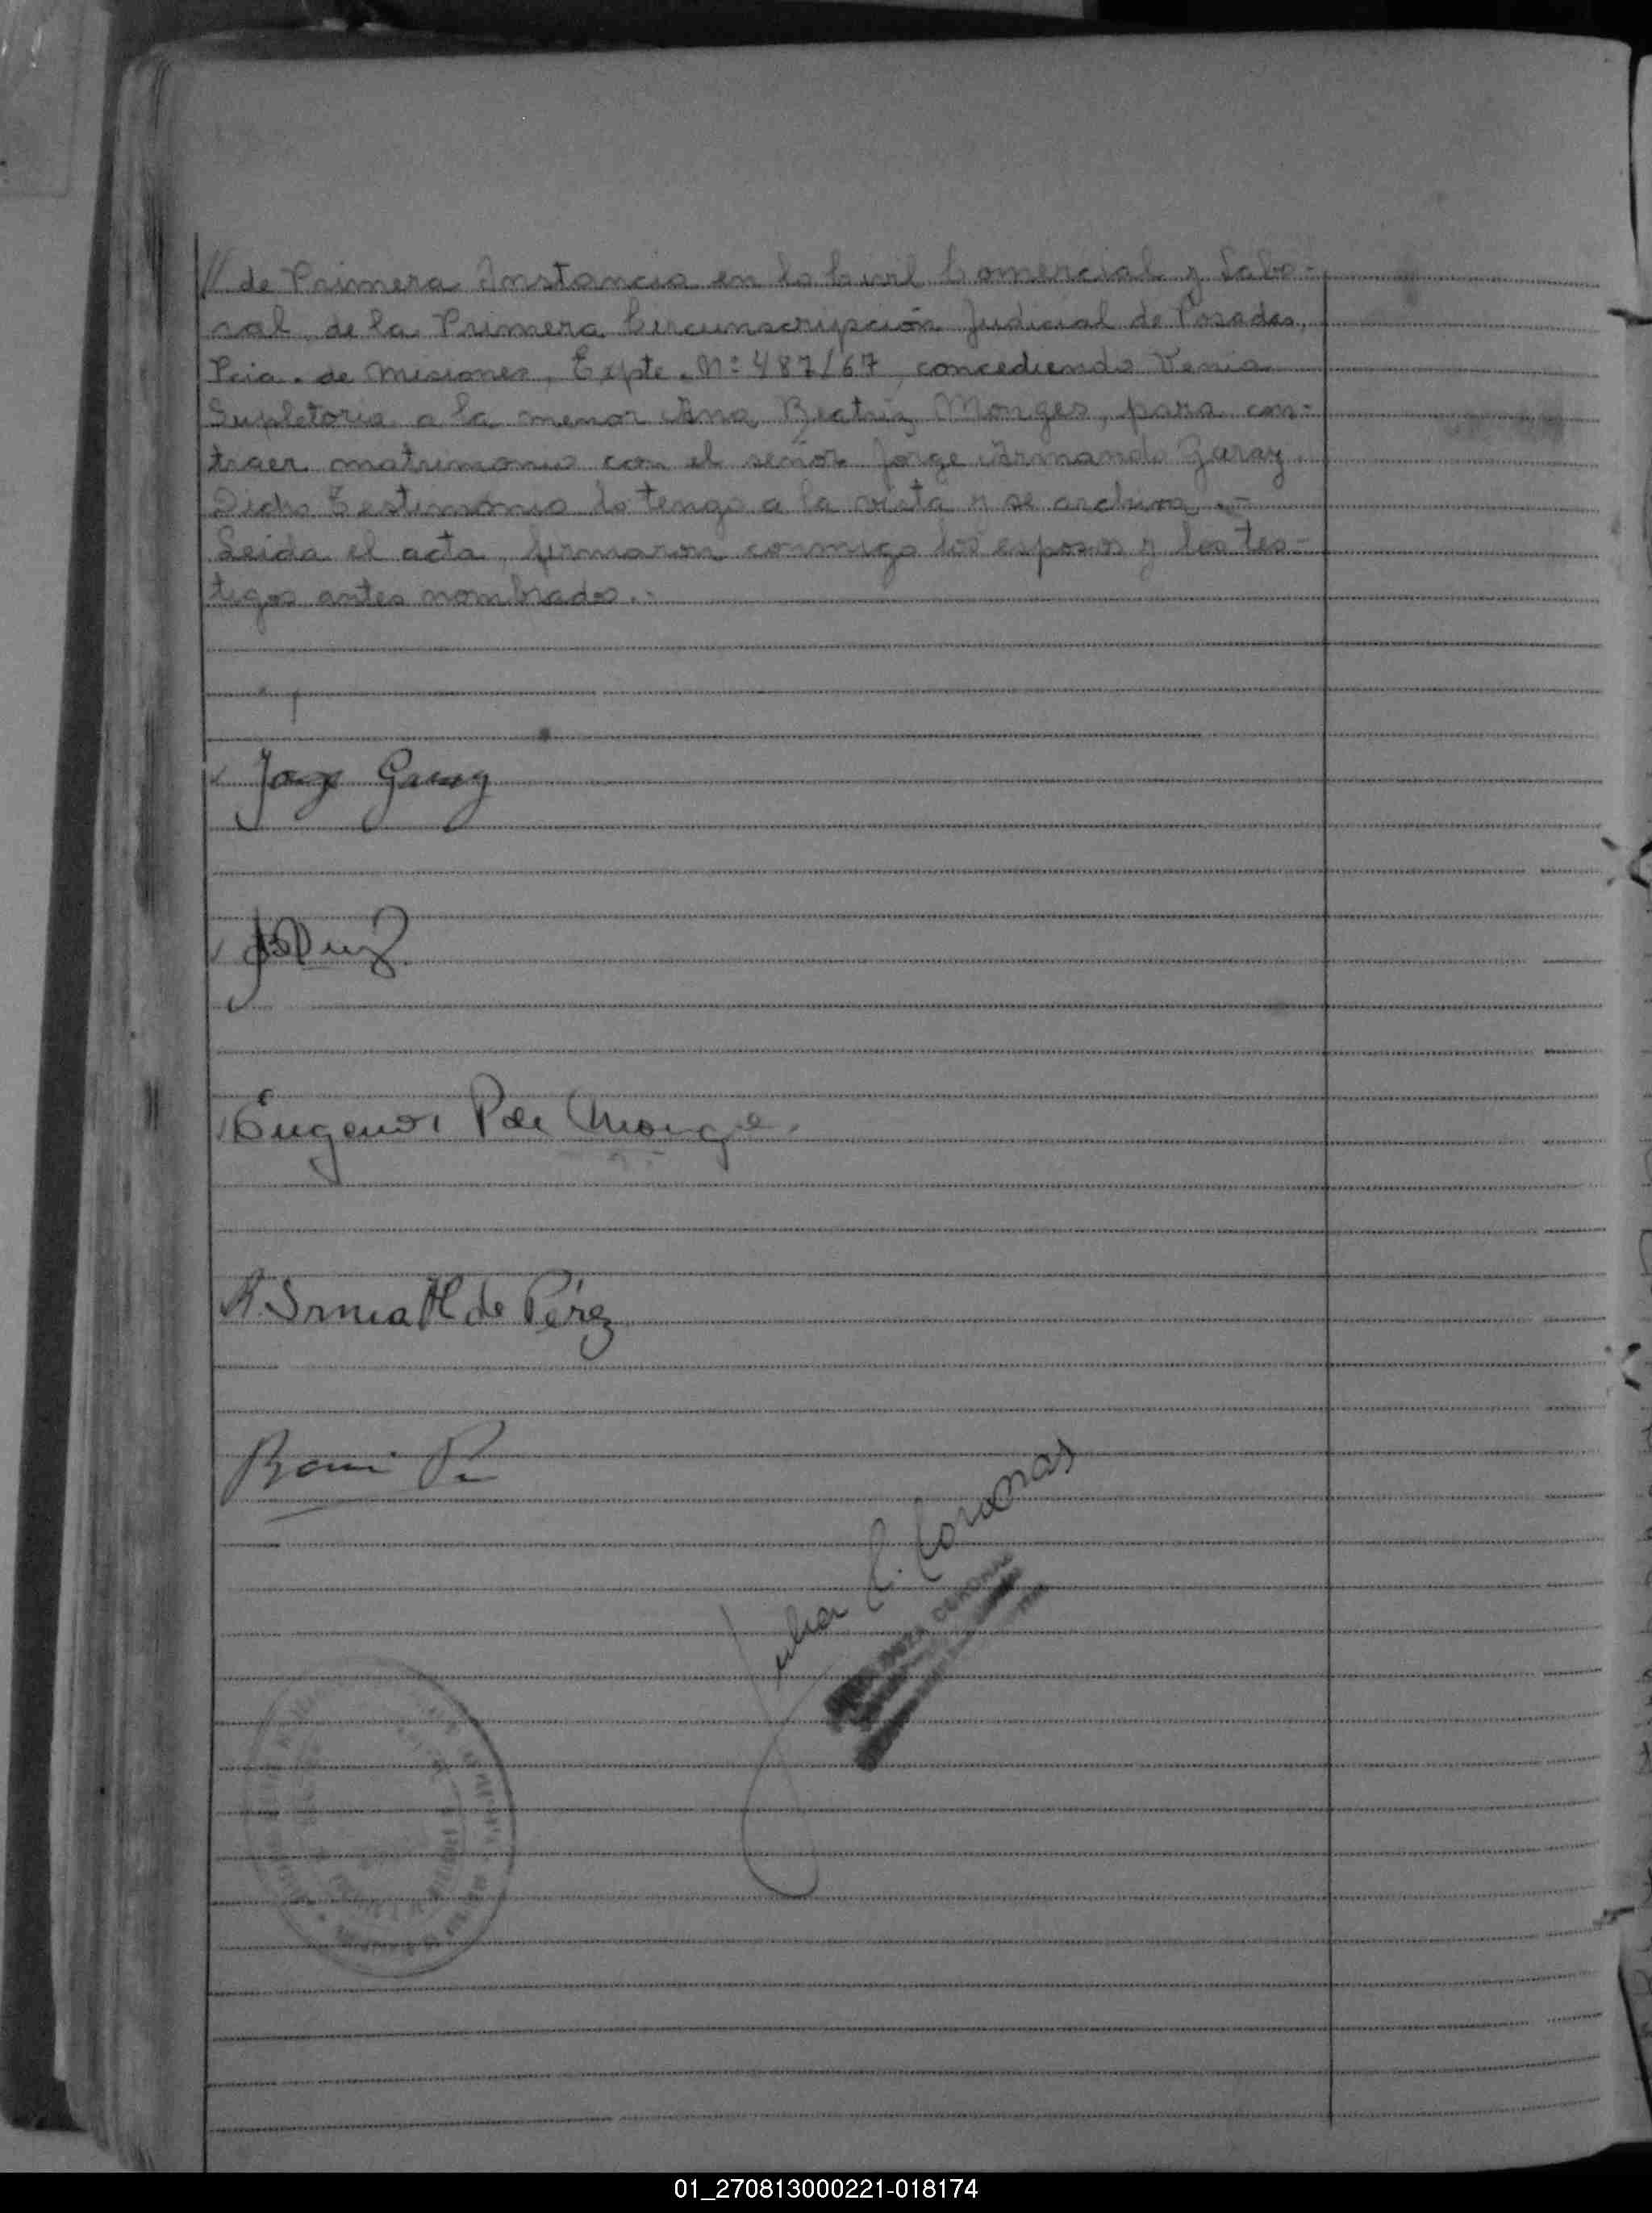 // de Primera Instancia en lo Civil Comercial y Labo-
ral de la Primera Circunscripción Judicial de Posadas,
Pcia. de Misiones, Expte. Nº 487/67, concediendo Venia
Supletoria a la menor Ana Beatriz Monges, para con-
traer matrimonio con el señor Jorge Armando Garay.
Dicho Testimonio lo tengo a la vista y se archiva.-
Leida el acta, firmaron conmigo los esposos y los tes-
tigos antes nombrados.-
Jorge Garay
Eugenio P de Monge
A. Irma M de Pérez
Julia C. Coronas
01_270813000221-018174